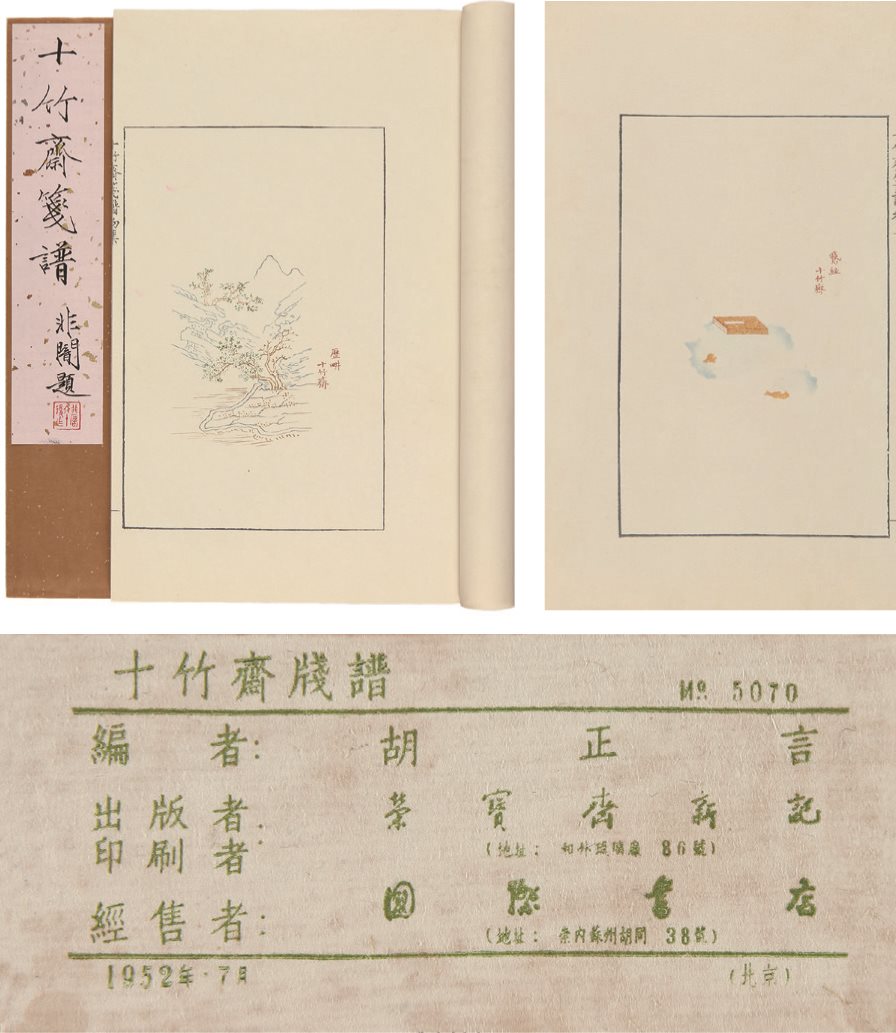 十竹齋箋譜
非闇題
歷畊
十竹齋
十竹齋
十竹齋牋譜
№ 5070
編者：胡正言
出版者：
印刷者：
榮寶齋新記
(地址： 和外琉璃廠 86號)
經售者：國際書店
(地址： 崇內蘇州胡同 38號)
1952年·7月
(北京)